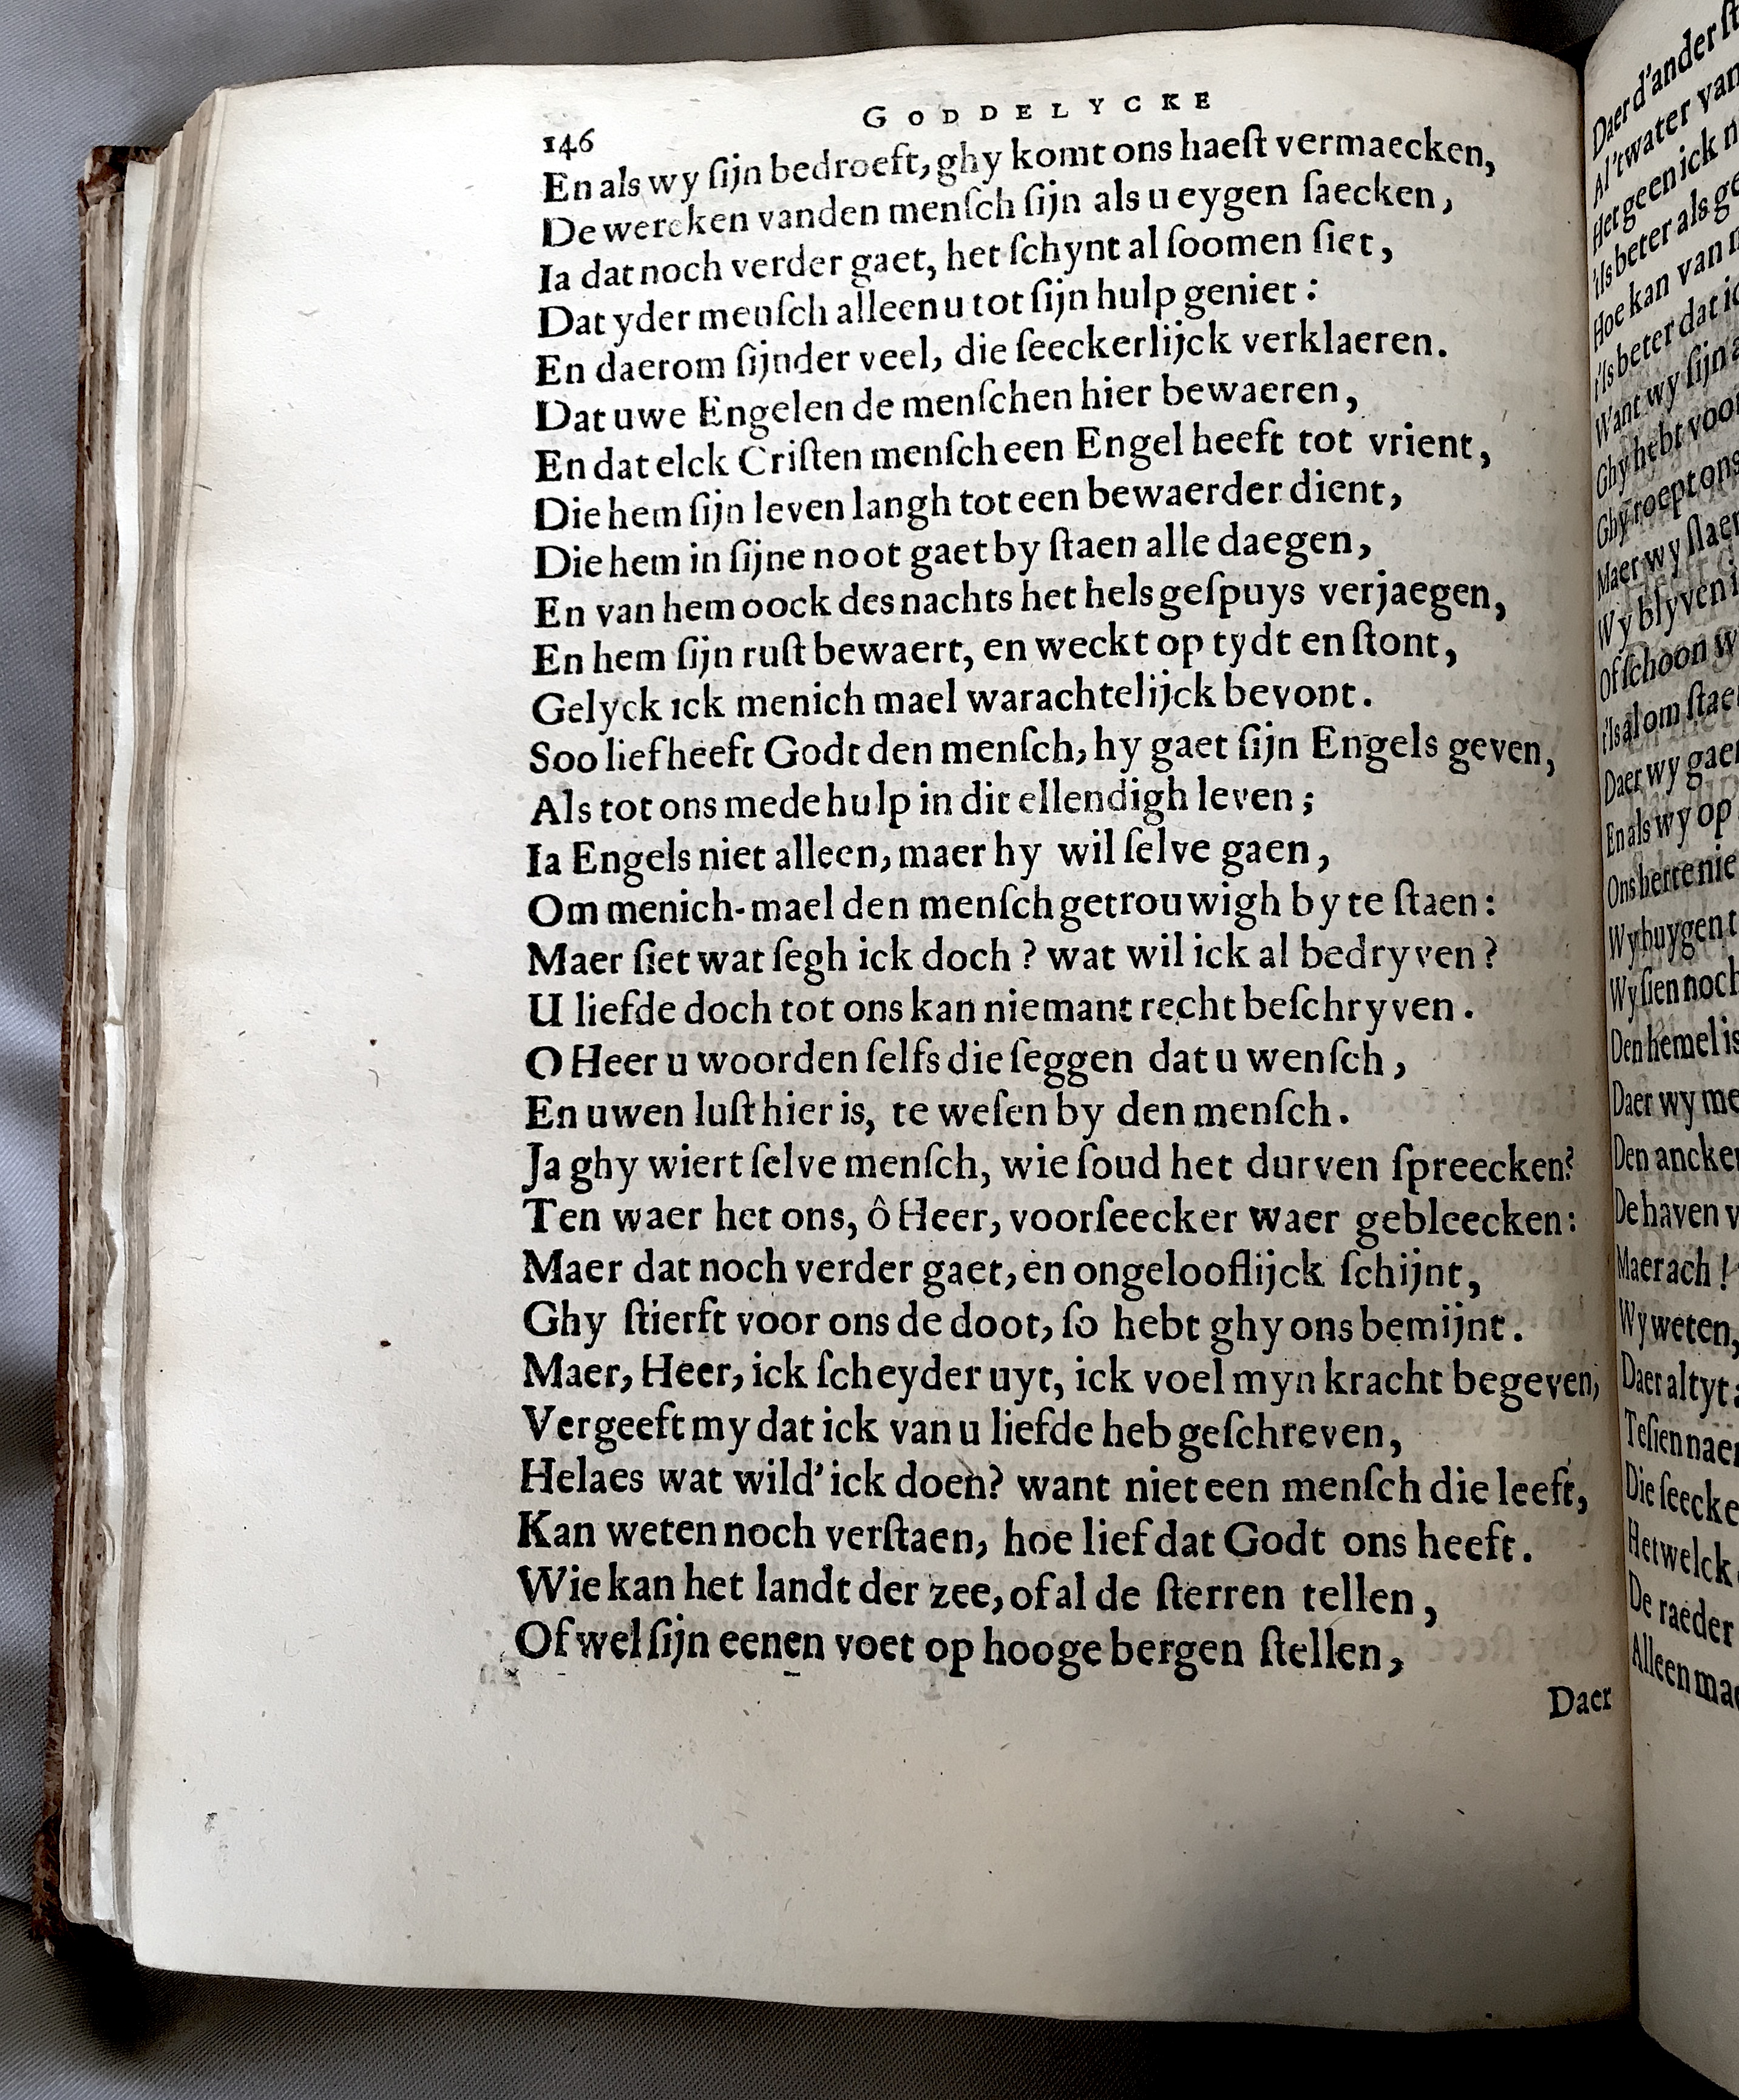 GODDELYCKE
146
En als wy ſijn bedroeft, ghy komt ons haeſt vermaecken,
De wercken vanden menſch ſijn als u eygen ſaecken,
Ia dat noch verder gaet, het ſchynt al ſoomen ſiet,
Dat yder menſch alleen u tot ſijn hulp geniet:
En daerom ſijnder veel, die ſeeckerlijck verklaeren.
Dat uwe Engelen de menſchen hier bewaeren,
En dat elck Criſten menſch een Engel heeft tot vrient,
Die hem ſijn leven langh tot een bewaerder dient,
Die hem in ſijne noot gaet by ſtaen alle daegen,
En van hem oock des nachts het hels geſpuys verjaegen,
En hem ſijn ruſt bewaert, en weckt op tydt en ſtont,
Gelyck ick menich mael warachtelijck bevont.
Soo lief heeft Godt den menſch, hy gaet ſijn Engels geven,
Als tot ons mede hulp in dit ellendigh leven;
Ia Engels niet alleen, maer hy wil ſelve gaen,
Om menich-mael den menſch getrouwigh by te ſtaen:
Maer ſiet wat ſegh ick doch? wat wil ick al bedryven?
U liefde doch tot ons kan niemant recht beſchryven.
O Heer u woorden ſelfs die ſeggen dat u wenſch,
En uwen luſt hier is, te weſen by den menſch.
Ja ghy wiert ſelve menſch, wie ſoud het durven ſpreecken?
Ten waer het ons, ô Heer, voorſeecker waer gebleecken:
Maer dat noch verder gaet, en ongelooflijck ſchijnt,
Ghy ſtierft voor ons de doot, ſo hebt ghy ons bemijnt.
Maer, Heer, ick ſcheyder uyt, ick voel myn kracht begeven,
Vergeeft my dat ick van u liefde heb geſchreven,
Helaes wat wild' ick doen? want niet een menſch die leeft,
Kan weten noch verſtaen, hoe lief dat Godt ons heeft.
Wie kan het landt der zee, of al de ſterren tellen,
Of wel ſijn eenen voet op hooge bergen ſtellen,
Daer
Daer d'ander
Al 't water van
Het geen ick
'tIs beter als
Hoe kan van
'tIs beter dat
Want wy ſijn
Ghy hebt
Ghy roept ons
Maer wy
Wy blyven
Of ſchoon
'tIs al om
Daer wy
En als wy op
Ons herte
Wy buygen
Wy ſien noch
Den hemel is
Daer wy
Den
De haven
Maer ach!
Wy weten,
Daer altyt
Te ſien
Die
Het welck
De raeder
Alleen